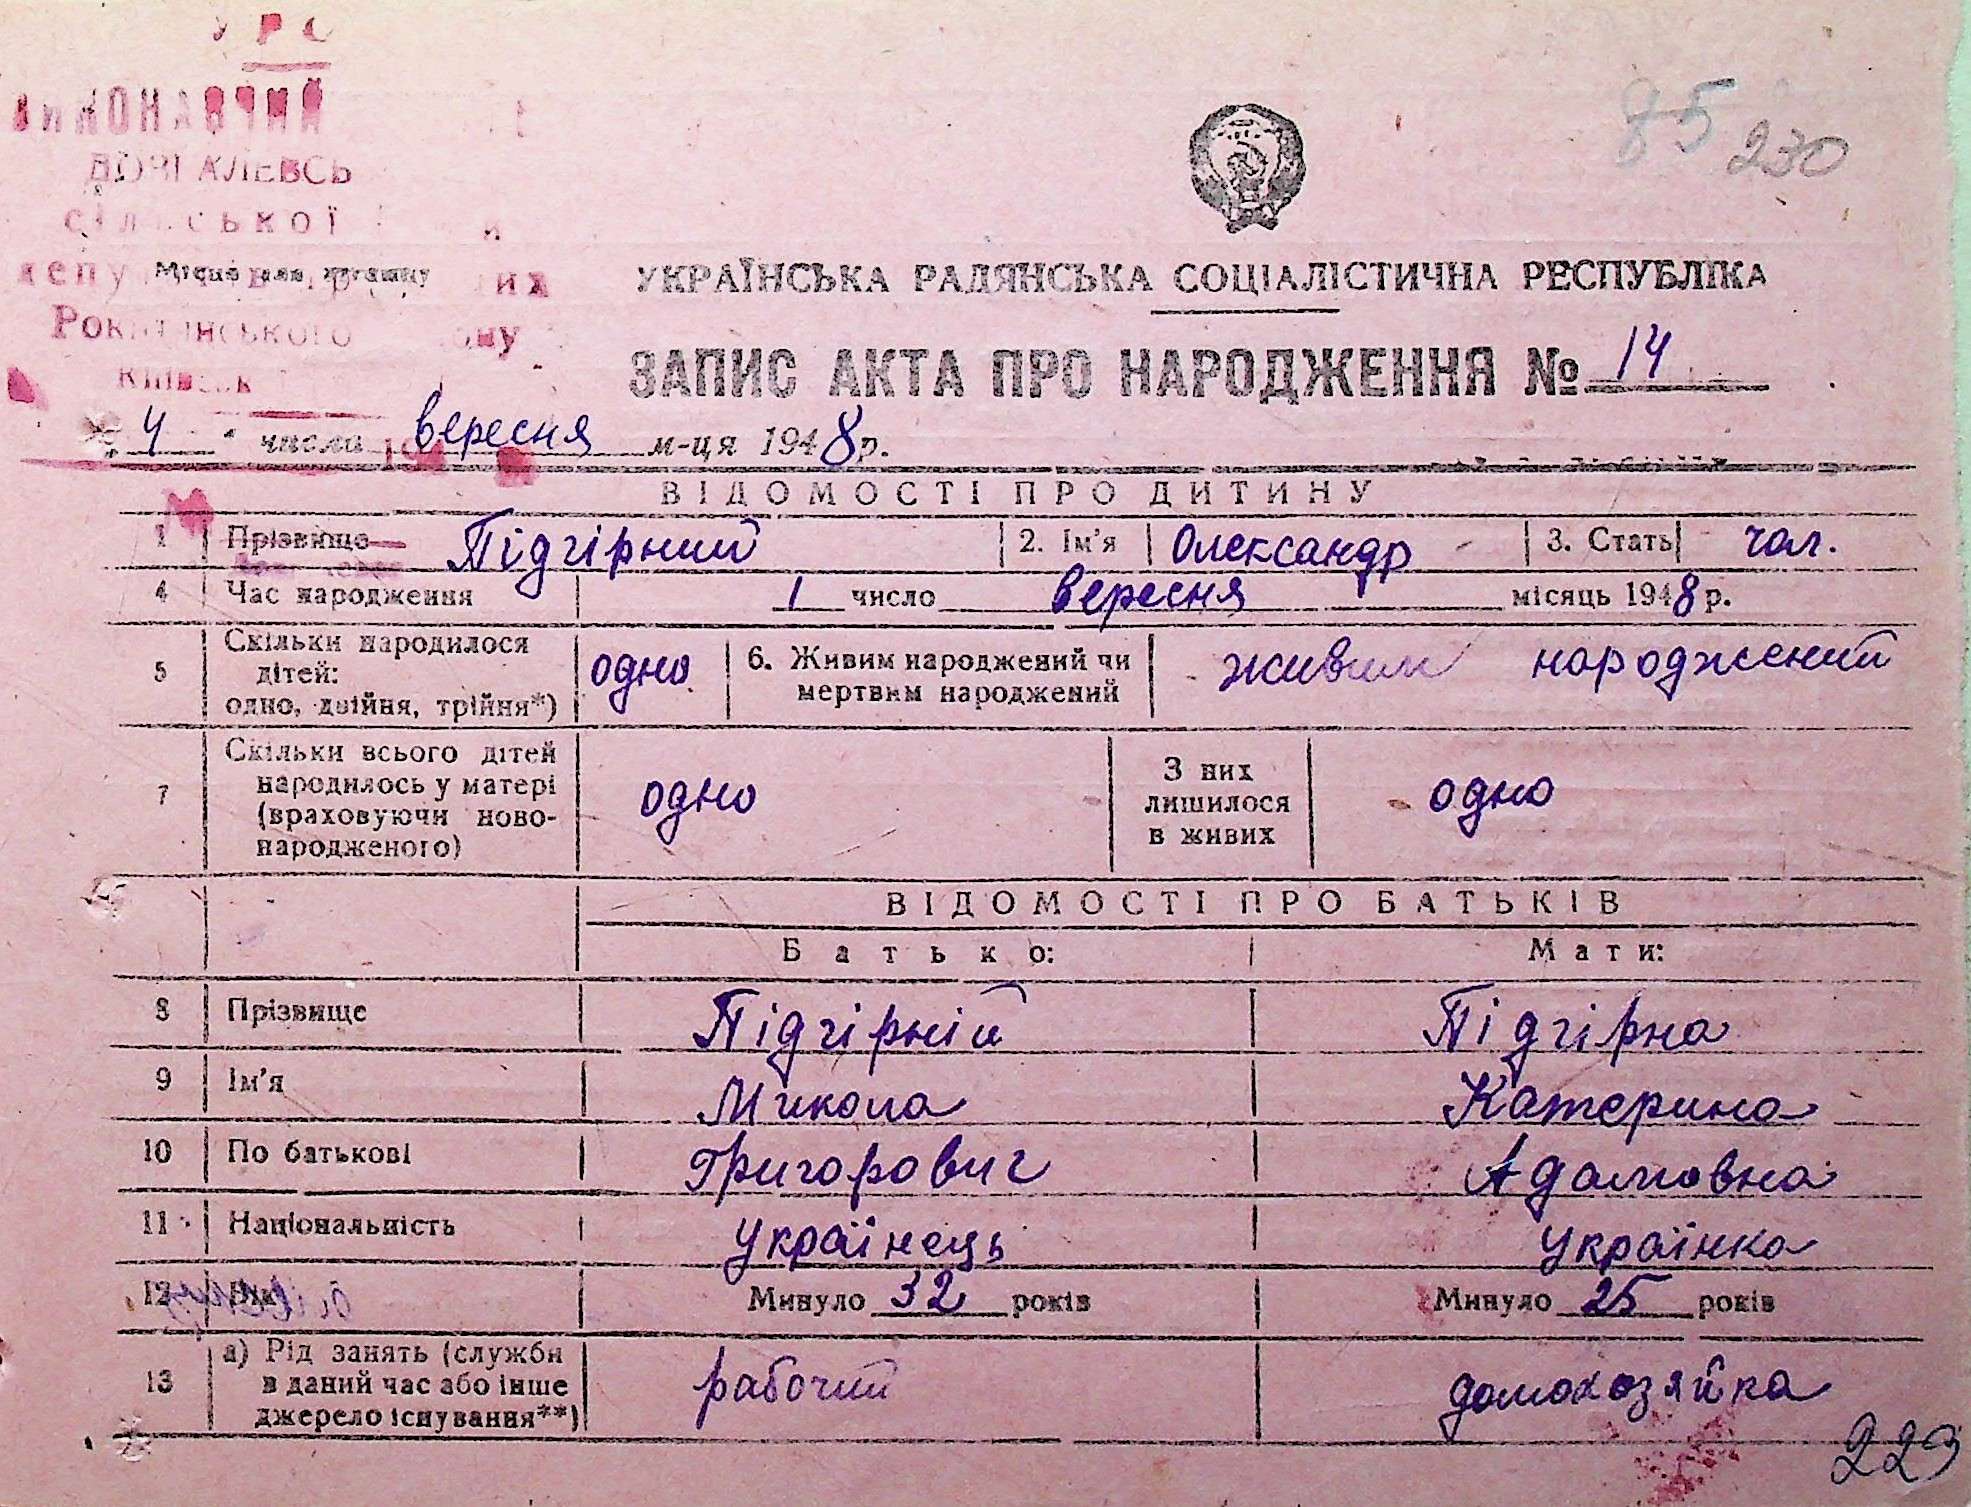 85 230
сільської
УКРАЇНСЬКА РАДЯНСЬКА СОЦІАЛІСТИЧНА РЕСПУБЛІКА
ЗАПИС АКТА ПРО НАРОДЖЕННЯ № 14
4 числа вересня м-ця 1948 р.
ВІДОМОСТІ ПРО ДИТИНУ
1 Прізвище Підгірний 2. Ім'я Олександр 3. Стать чол.
4 Час народження 1 число вересня місяць 1948 р.
5 Скільки народилося дітей: одно, двійня, трійня*) одно 6. Живим народжений чи мертвим народжений живим народжений
7 Скільки всього дітей народилось у матері (враховуючи новонародженого) одно З них лишилося в живих одно
ВІДОМОСТІ ПРО БАТЬКІВ
Батько: Мати:
8 Прізвище Підгірній Підгірна
9 Ім'я Микола Катерина
10 По батькові Григорович Адамовна
11 Національність українець українка
12 Вік Минуло 32 років Минуло 25 років
13 а) Рід занять (служби в даний час або інше джерело існування**) рабочий домохозяйка
223